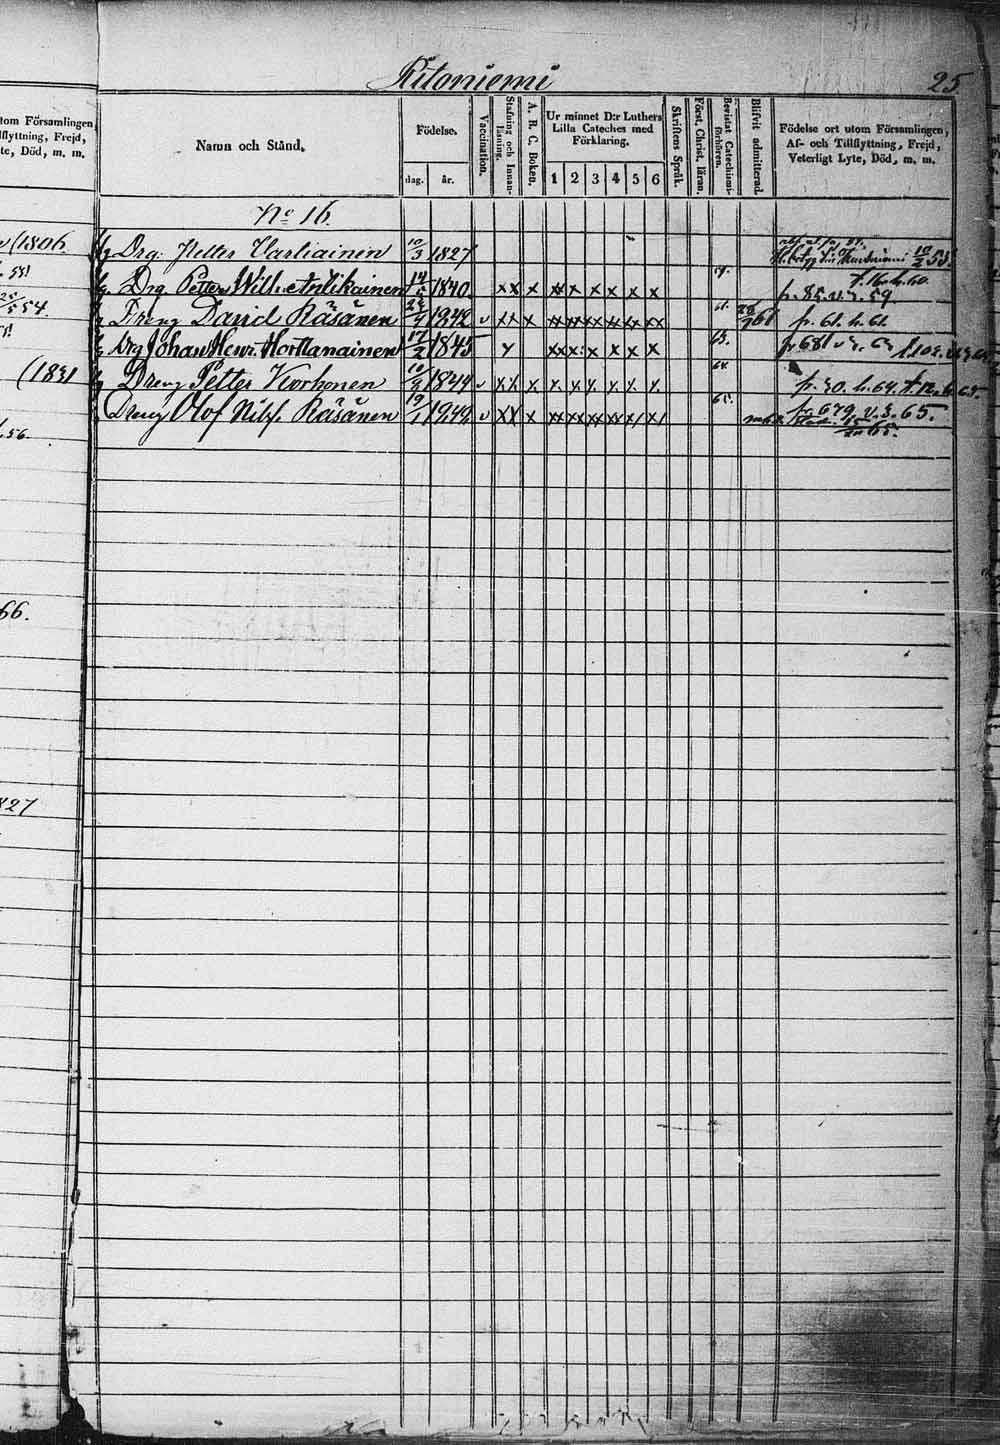 Ritoniemi
25
tom Församlingen
lflyttning, Frejd,
te, Död, m. m.
Namn och Stånd.
Födelse.
dag. år.
Vaccination.
Stafning och Innanläsning.
A. B. C. Boken.
Ur minnet D:r Luthers Lilla Cateches med Förklaring.
1 2 3 4 5 6
Skriftens Språk.
Först. Christ. läran.
Bevistat Catechismiförhören.
Blifvit admitterad.
Födelse ort utom Församlingen, Af- och Tillflyttning, Frejd, Veterligt Lyte, Död, m. m.
No 16.
(1806.
Drg. Petter Vartiainen 10/3 1827 10/2 53.
Drg Petter Wilh. Antikainen 14/5 1840. xx x xx x x x x x 59. fr. 85. v. s. 59 t. 16. h. 60.
25/5 54.
Dreng David Räsänen 1842 v xx x xx xx xx xx xx xx 61. 61 fr. 61. h. 61.
Drg Johan Henr. Horttanainen 17/2 1845 x xx x: x x x x 63. fr 681 v s. 63
(1831
Dreng Petter Korhonen 10/9 1844 v x x x x x x x x x 64. fr. 30. h. 64. t. 12. h. 65.
Dreng Olof Nilss. Räsänen 19/1 1849 v xx x xx xx xx xx x/ x/ 65. fr 679. v. s. 65.
.56.
66.
827